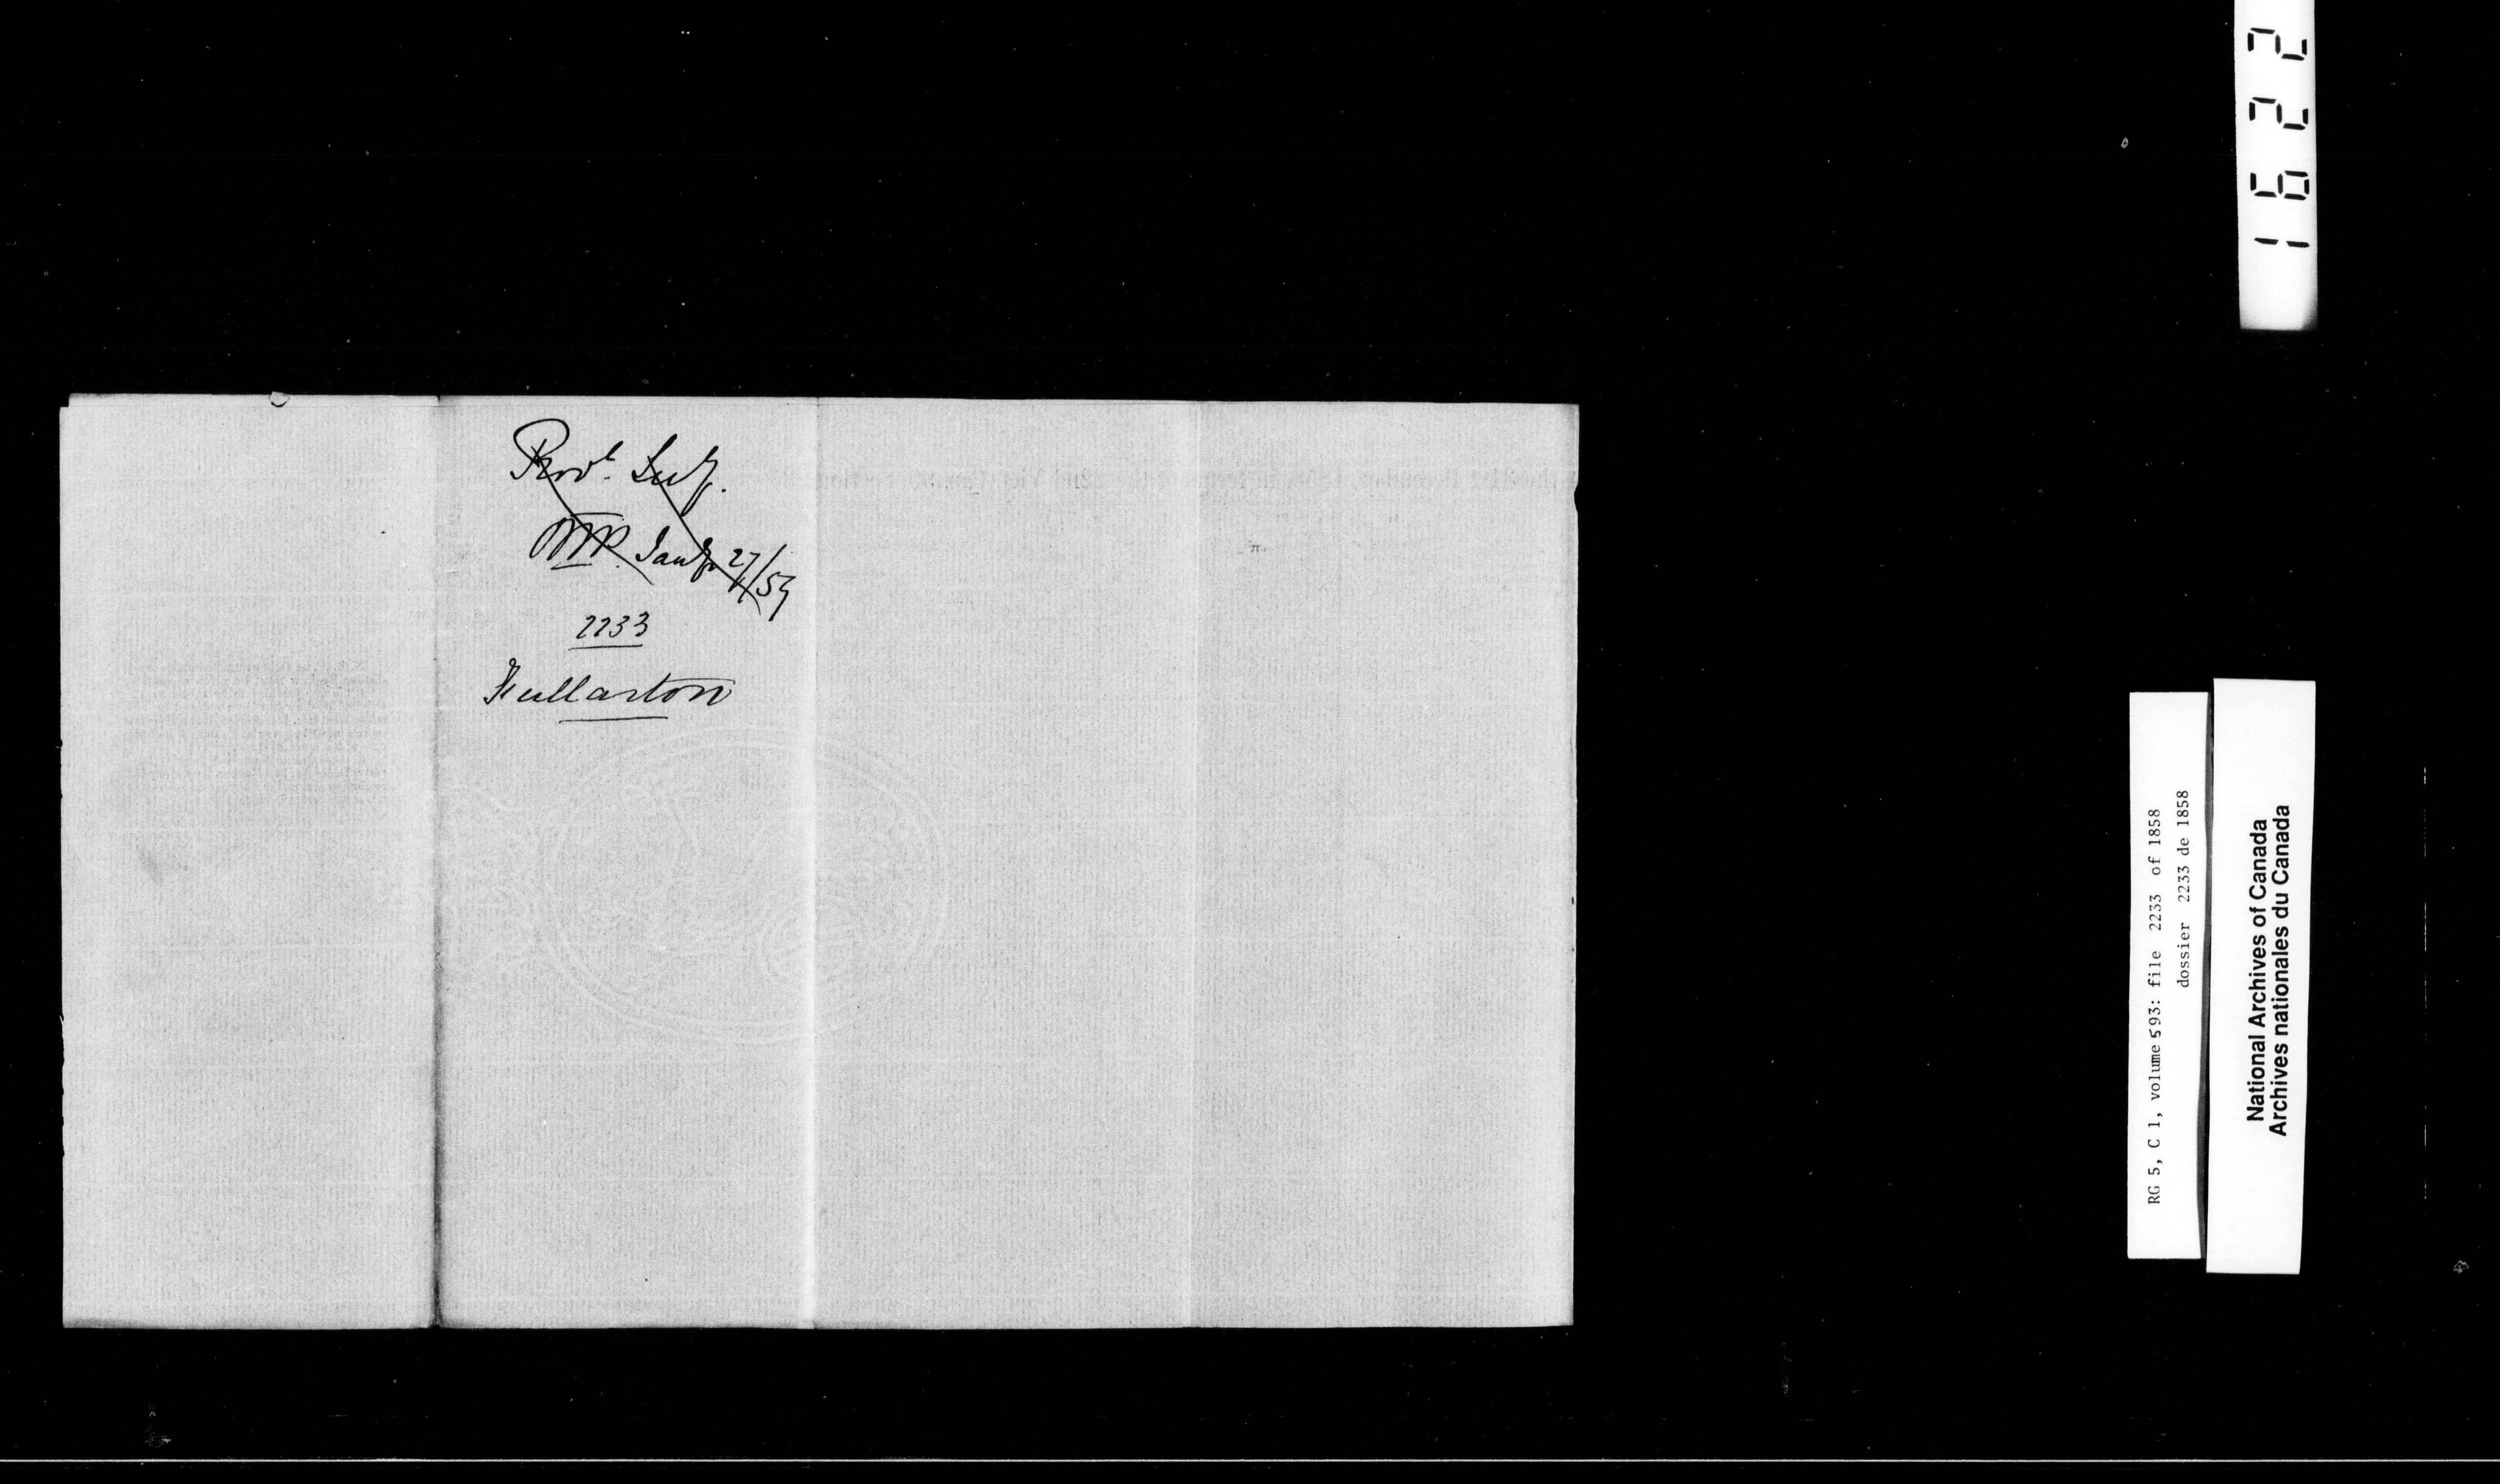 Prov.l Secy.
Jany 27/59
2233
Fullarton
1622
RG 5, C 1, volume 593: file 2233 of 1858
dossier 2233 de 1858
National Archives of Canada
Archives nationales du Canada